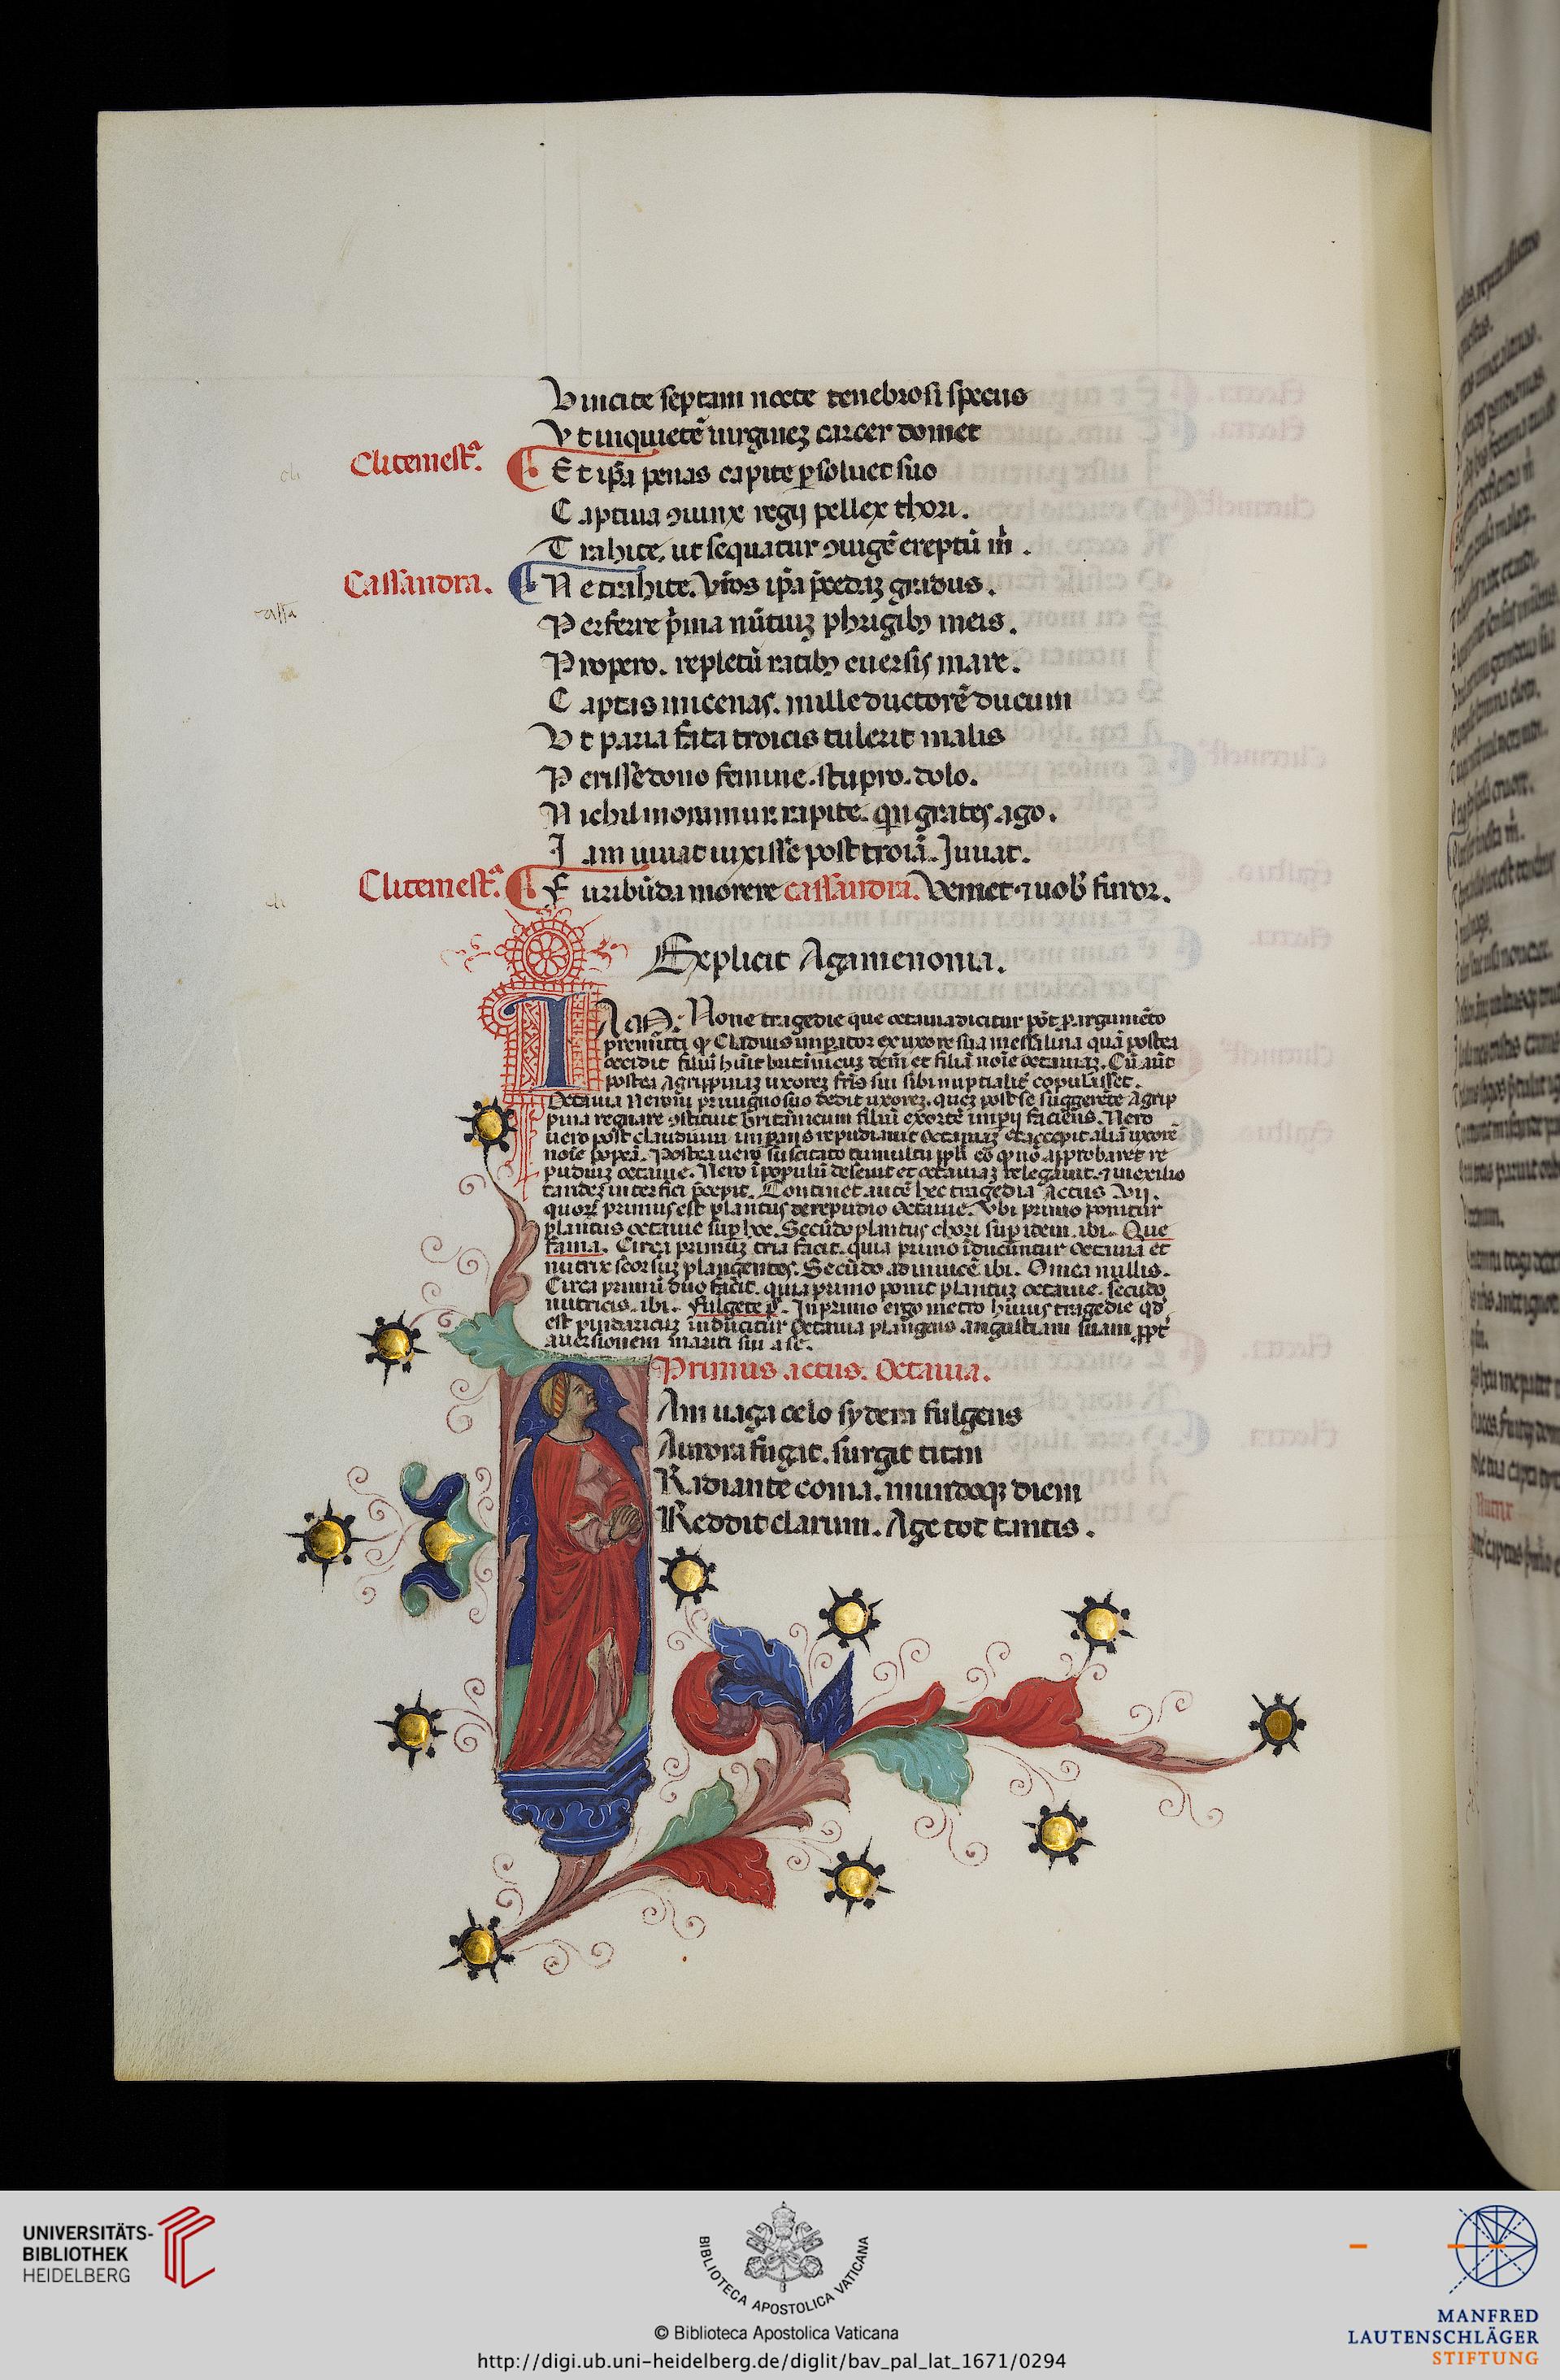 Vincite septam nocte tenebrosi specus
Vt inquietē uirginez carcer domet
Clitemestᵃ.
Et ip̄a penas capite ꝑsoluet suo
Captiua ꝯiunx regij pellex thori.
Trahite. ut sequatur ꝯiugē ereptū m̄.
Cassandra.
Ne trahite. Vr̄os ip̄a p̄cedaz gradus.
Perferre p̄ma nūtiuz phrigibꝫ meis.
Propero. repletū ratibꝫ euersis mare.
Captas micenas. mille ductorē ducum
Vt paria fata troicis tulerit malis
Perisse dono femine. stupro. dolo.
Nichil moramur. rapite. grates ago.
Iam uiuat uixisse post troiā. Iuuat.
Clitemestᵃ.
Furibūda morere cassandra. Veniet ⁊ uob̄ furor.
Explicit Agamenonia.
None tragedie que octauia dicitur pōt ꝑ argumēto
premitti ꝙ Cladius imꝑator ex uxore sua messalina quā postea
occidit filiū hūit britānicuz dem̄ et filiā noīe octauiaz. Cū aūt
postea Agrippinaz uxorez fr̄is sui sibi nuptialit̄ copulasset.
Octauia Neroni priuigno suo dedit uxorez. quez post se suggerēte Agrip
pina regnare ꝯstituit britānicum filiū exortē imperij faciens. Nero
uero post claudium imꝑans repudiauit octauiaz et accepit aliā uxorē
noīe popeā. Postea uero suscitato tumultu ppl̄i eo ꝙ nō approbaret re
pudiuz octauie. Nero ī populū deseuit et octauiaz relegauit. ⁊ in exilio
tandez interfici p̄cepit. Continet autē hec tragedia Actus Vij.
quoꝝ primus est plantus de repudio Octauie. Vbi primo ponitur
plantus octauie suꝑ hoc. Secūdo plantus chori suꝑ idem. ibi. Que
fama. Circa primuz tria facit. quia primo īducuntur Octauia et
nutrix seorsuz plangentes. Secūdo adinuicē ibi. Omea nullis.
Circa primū duo facit. quia primo ponit plantuz octauie. secūdo
nutricis. ibi. Fulgere p̄. In primo ergo metro huius tragedie qd̄
est pindaricuz inducitur Octauia plangens angustiam suam ꝓpt̄
auersionem mariti sui a se.
Primus actus. Octauia.
Am uaga celo sydera fulgens
Aurora fugat. surgit titan
Radiante coma. mundoqꝫ diem
Reddit clarum. Age tot tantis.
UNIVERSITÄTS-
BIBLIOTHEK
HEIDELBERG
BIBLIOTECA APOSTOLICA VATICANA
© Biblioteca Apostolica Vaticana
http://digi.ub.uni-heidelberg.de/diglit/bav_pal_lat_1671/0294
MANFRED
LAUTENSCHLÄGER
STIFTUNG